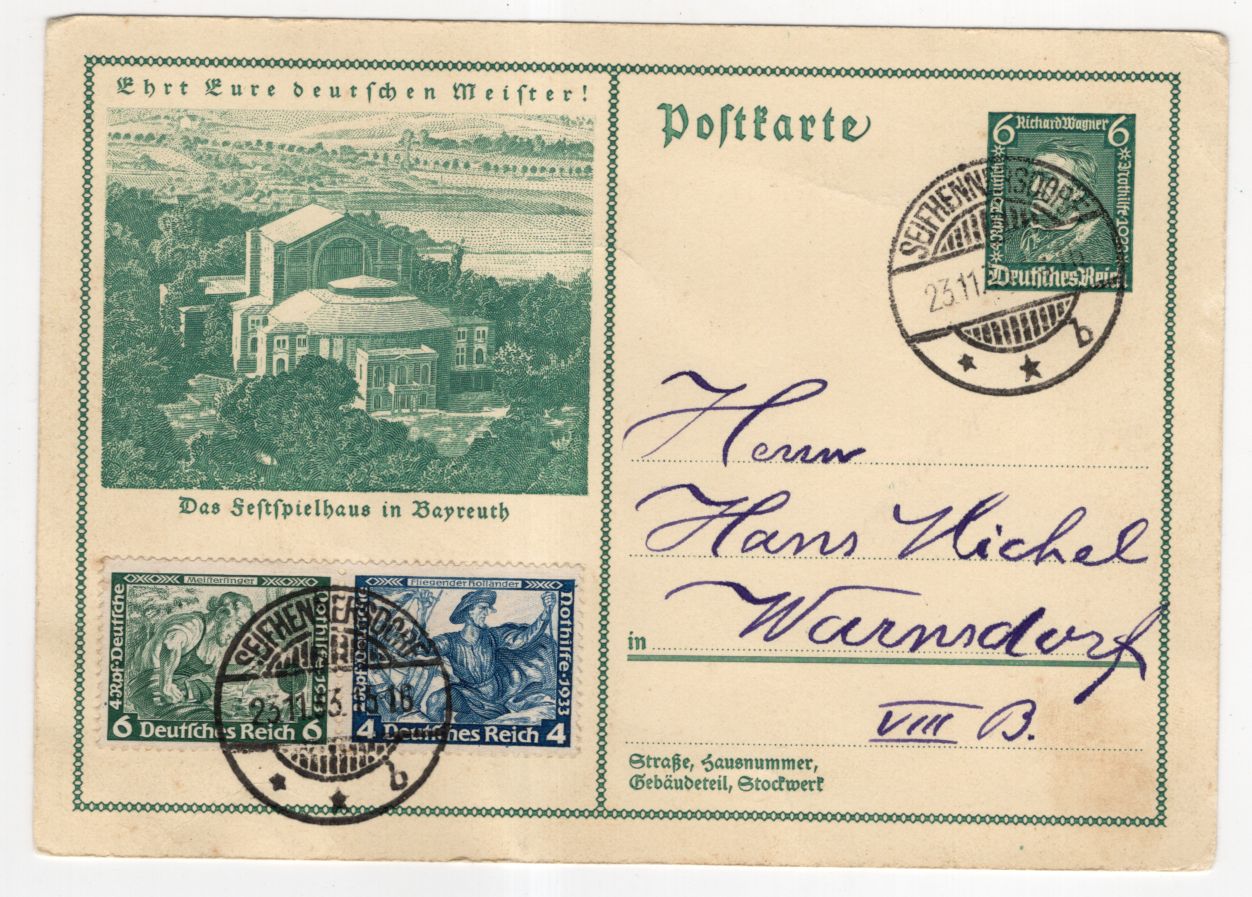 Ehrt Eure deutschen Meister!
Das Festspielhaus in Bayreuth
Postkarte
6 Richard Wagner 6
Nothilfe·1933
Deutsches Reich
SEIFHENNERSDORF
23.11.
b
Herrn
Hans Michel
in Warnsdorf
VIII B.
Straße, Hausnummer,
Gebäudeteil, Stockwerk
Meistersinger
4·Rpf·Deutsche
6 Deutsches Reich 6
Fliegender Holländer
Nothilfe·1933
4 Deutsches Reich 4
SEIFHENNERSDORF
23.11.33.15-16
b